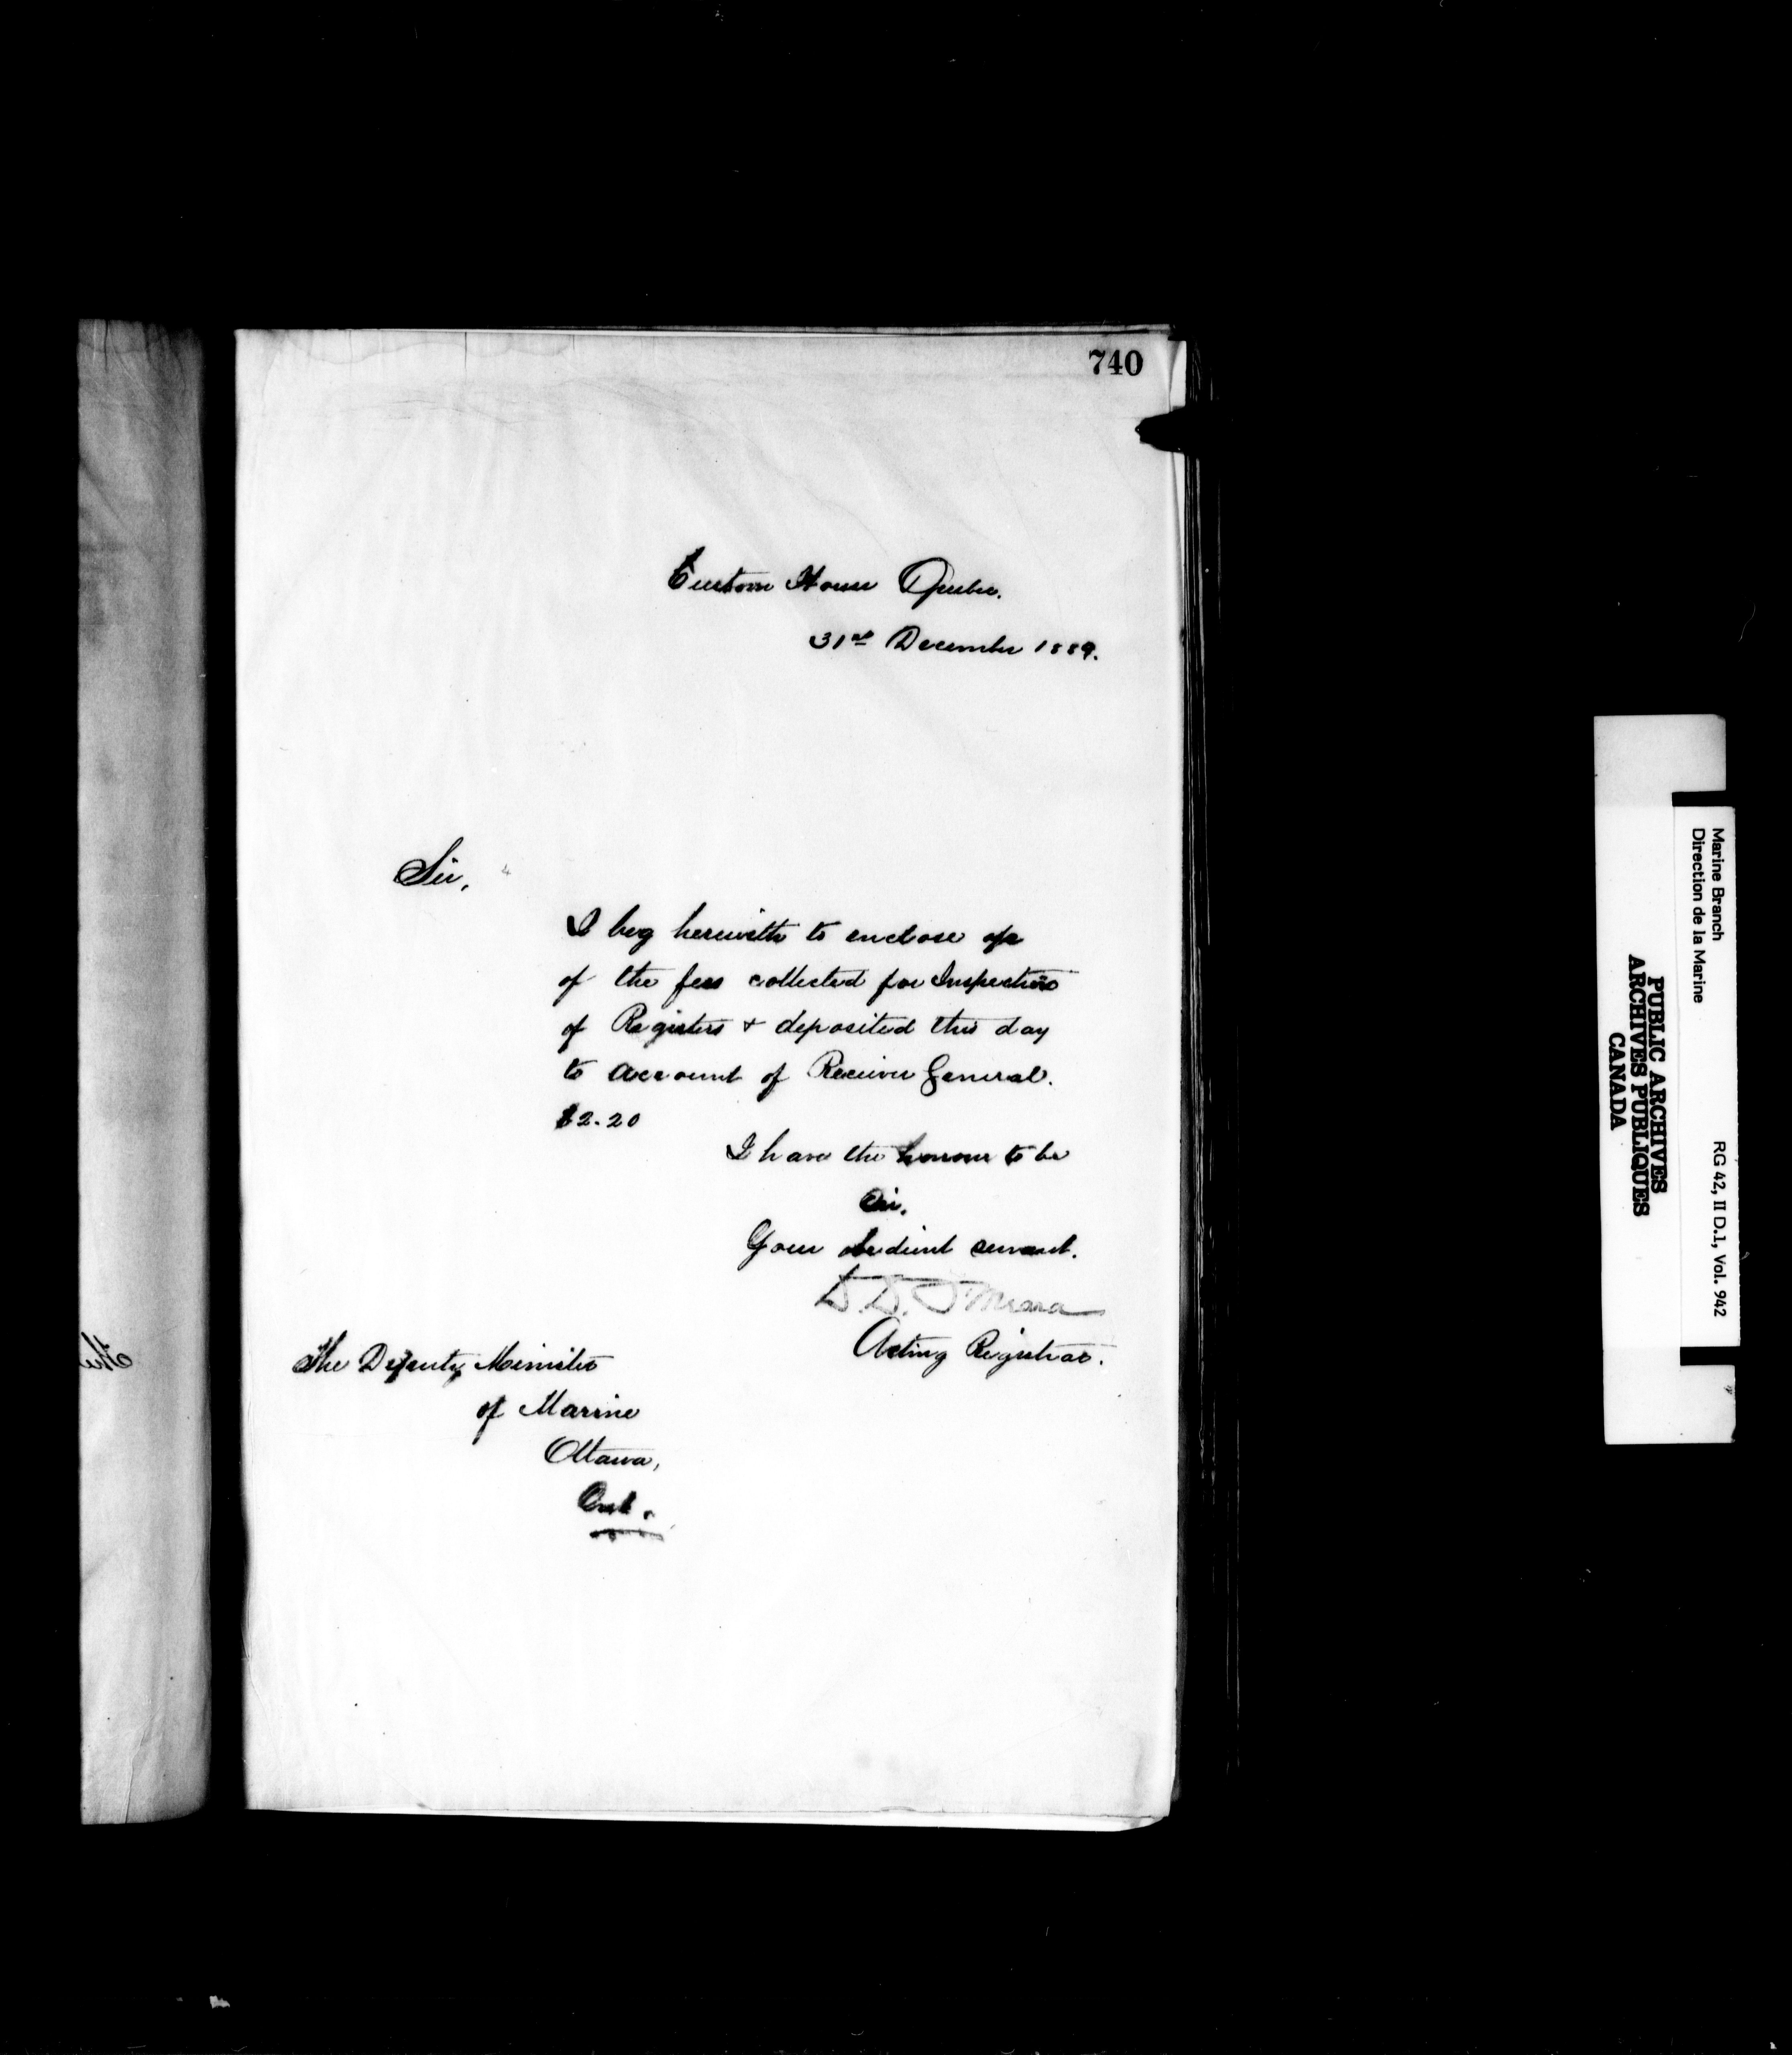 740
Custom House Quebec.
31st December 1889.
Sir,
I beg herewith to enclose a/c
of the fees collected for Inspection
of Registers + deposited this day
to account of Receiver General.
$2.20
I have the honour to be
Sir.
Your obedient servant.
D. D. O'Meara
Acting Registrar.
The Deputy Minister
of Marine
Ottawa,
Ont.
Marine Branch
Direction de la Marine
RG 42, II D.1, Vol. 942
PUBLIC ARCHIVES
ARCHIVES PUBLIQUES
CANADA